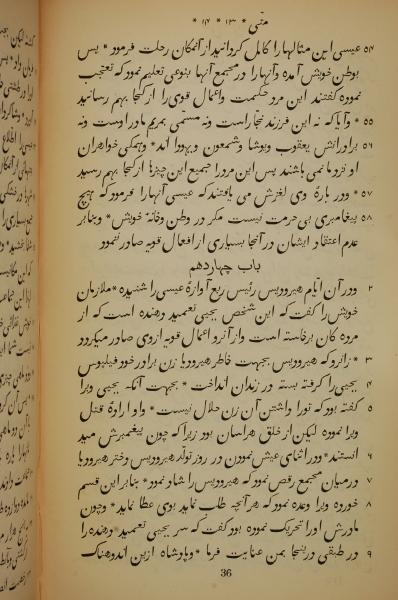 متی * ۱۳ * ۱۴ *
۵۴ عیسی این مثالها را کامل گردانید از آنمکان رحلت فرمود * پس
بوطن خویش آمده و آنها را در مجمع آنها بنوعی تعلیم نمود که تعجب
نموده گفتند این مرد حکمت و اعمال قوی را از کجا بهم رسانید
۵۵ * و آیا که نه این فرزند نجار است و نه مسمی بمریم مادر اوست و نه
۵۶ برادرانش یعقوب و یوشا و شمعون و یهودا اند * و همگی خواهران
او نزد ما نمی باشند پس این مرد را جمیع این چیزها از کجا بهم رسید
۵۷ * و در بارهٔ وی لغزش می یافتند که عیسی آنها را فرمود که هیچ
۵۸ پیغامبری بی حرمت نیست مگر در وطن و خانهٔ خویش * و بنابر
عدم اعتقاد ایشان در آنجا بسیاری از افعال قویه صادر ننمود
باب چهاردهم
۲ و در آن ایام هیرودیس رئیس ربع آوازهٔ عیسی را شنیده * ملازمان
خویش را گفت که این شخص یحیی تعمید دهنده است که از
مرده کان برخاسته است و از آنرو اعمال قویه از وی صادر میگردد
۳ * زانرو که هیرودیس بجهت خاطر هیرودیا زن برادر خود فیلبوس
۴ یحیی را گرفته بسته در زندان انداخت * بجهت آنکه یحیی ویرا
۵ گفته بود که تورا داشتن آن زن حلال نیست * و او ارادهٔ قتل
ویرا نموده لیکن از خلق هراسان بود زیرا که چون پیغمبرش مید
۶ انستند * و در اثنای عیش نمودن در روز تولد هیرودیس دختر هیرودیا
۷ در میان مجمع رقص نمود که هیرودیس را شاد نمود * بنابر این قسم
۸ خورده ویرا وعده نمود که هر آنچه طلب نماید بوی عطا نماید * و چون
مادرش اورا تحریک نموده بود گفت که سر یحیی تعمید دهنده را
۹ در طبقی در اینجا بمن عنایت فرما * و پادشاه ازین اندوهناک
36